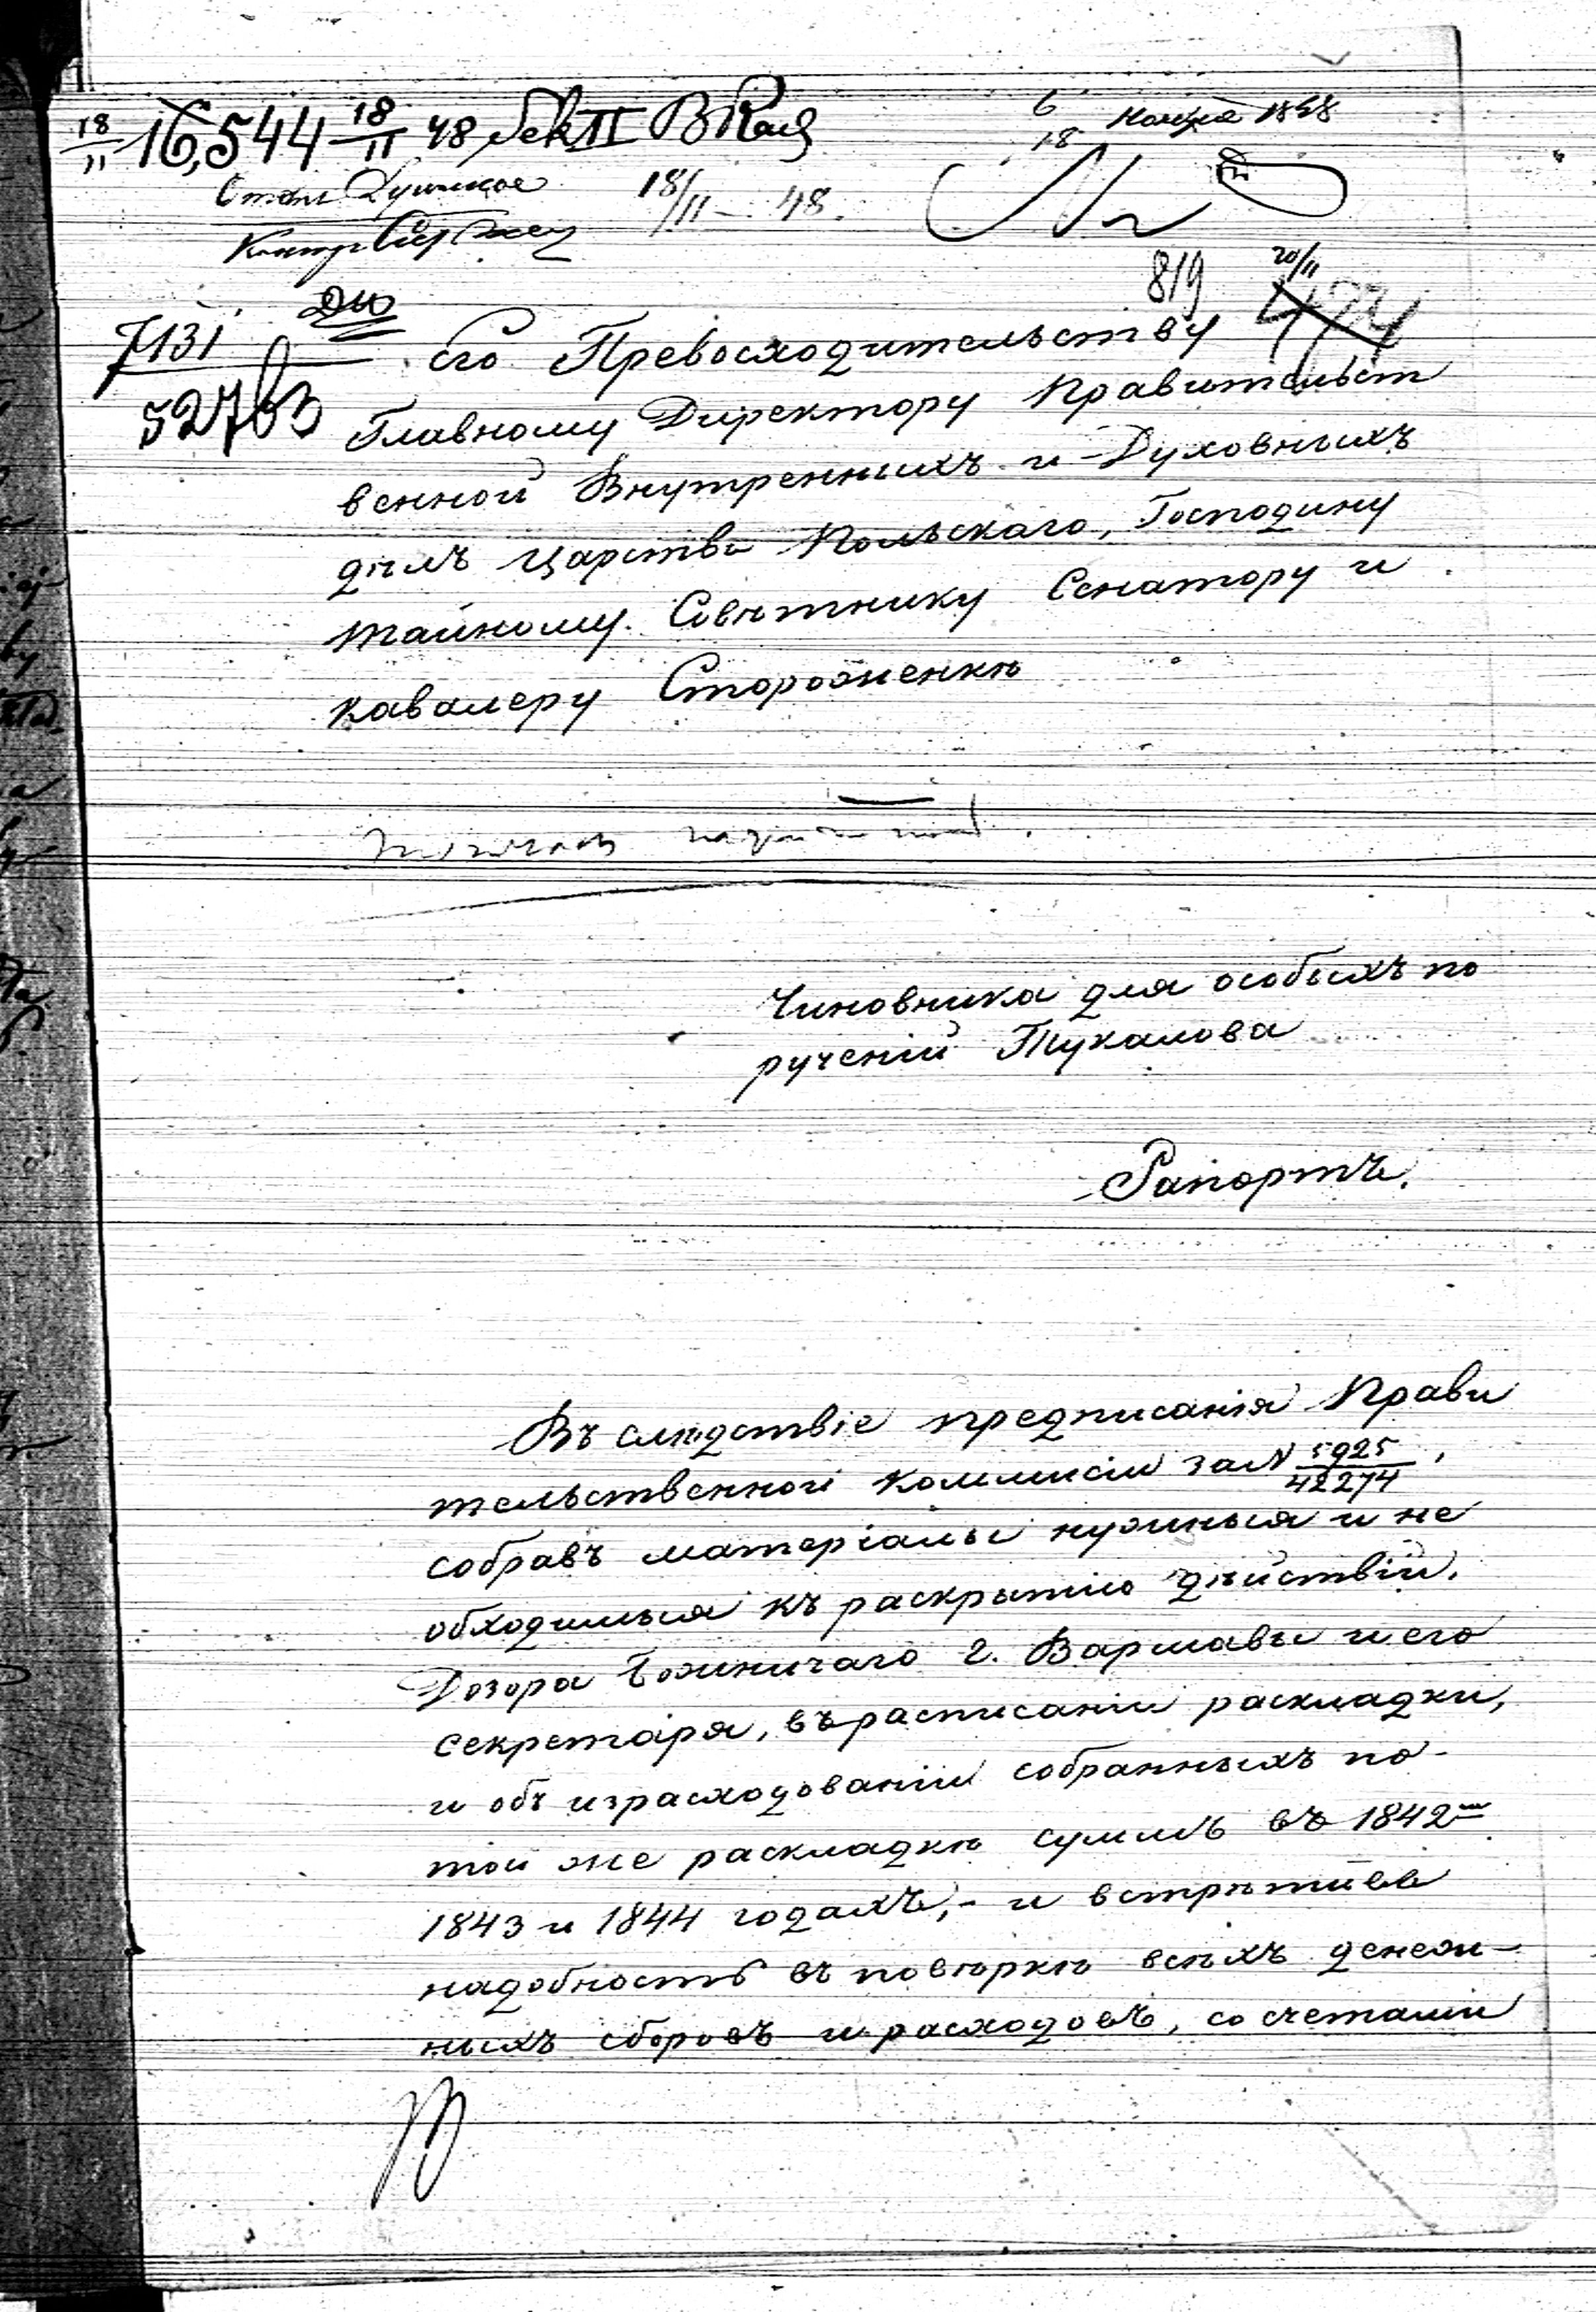 18/11 16,544 18/11 48 Sek II
6/18 Ноября 1848
18/11 - 48.
819 20/11
7131
52763
Его Превосходительству
Главному Директору Правительст
венной Внутреннихъ и Духовныхъ
дѣлъ Царства Польскаго, Господину
тайному Совѣтнику Сенатору и
кавалеру Стороженкѣ
Чиновника для особыхъ по
рученій Тукалова
Рапортъ.
Въ слѣдствіе предписанія Прави
тельственной Коммисіи за N 5925/42274,
собравъ матеріалы нужныя и не
обходимыя къ раскрытію дѣйствій
Дозора Божничаго г. Варшавы и его
секретаря, въ расписаніи раскладки,
и объ израсходованіи собранныхъ по
той же раскладкѣ суммъ въ 1842мъ
1843 и 1844 годахъ, - и встрѣтивъ
надобность въ повѣркѣ всѣхъ денеж-
ныхъ сборовъ и расходовъ, со счетами